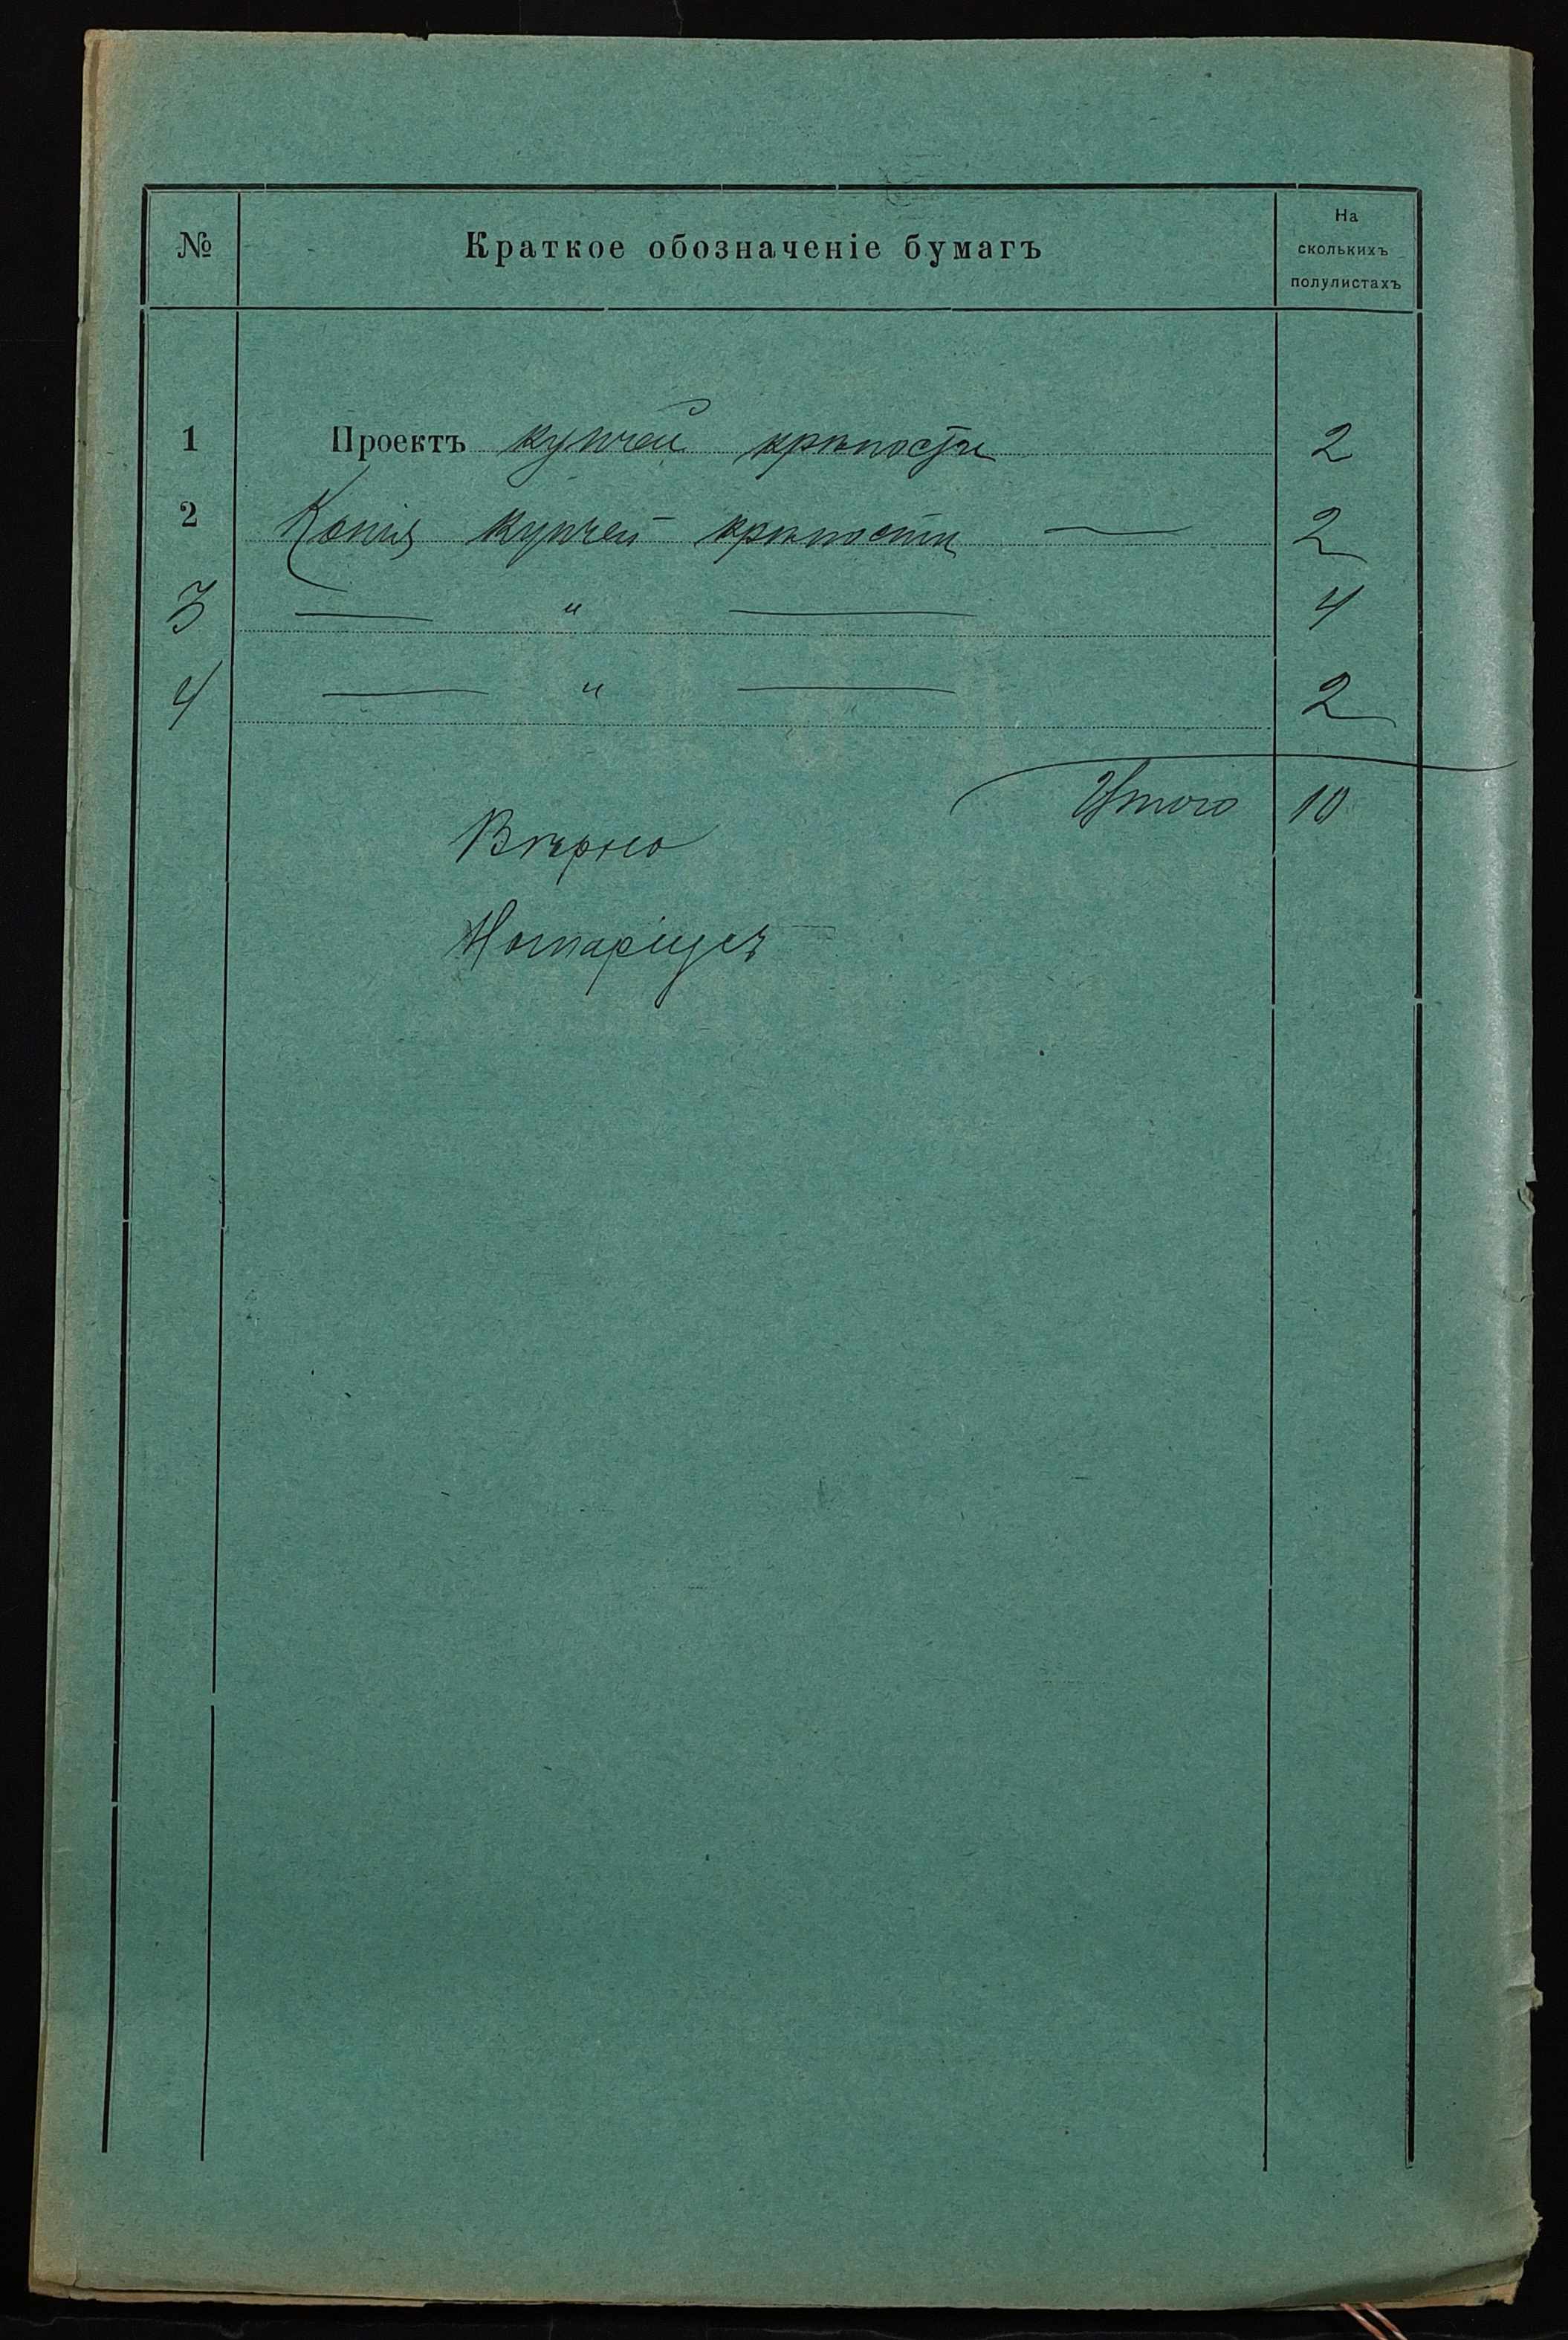 № Краткое обозначеніе бумагъ На сколькихъ полулистахъ
1 Проектъ купчей крѣпости 2
2 Копія купчей крѣпости — 2
3 — " — 4
4 — " — 2
Итого 10
Вѣрно
Нотаріусъ